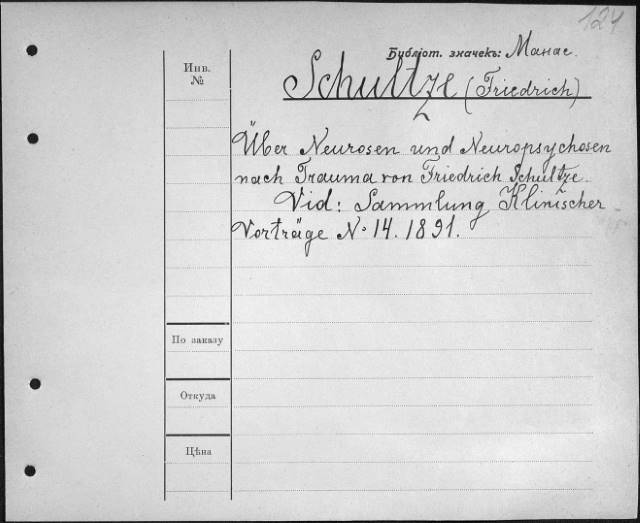 124
Библіот. значекъ: Манас.
Инв.
№
Schultze (Friedrich)
Über Neurosen und Neuropsychosen
nach Trauma von Friedrich Schultze.
Vid: Sammlung Klinischer
Vorträge № 14. 1891.
По заказу
Откуда
Цѣна